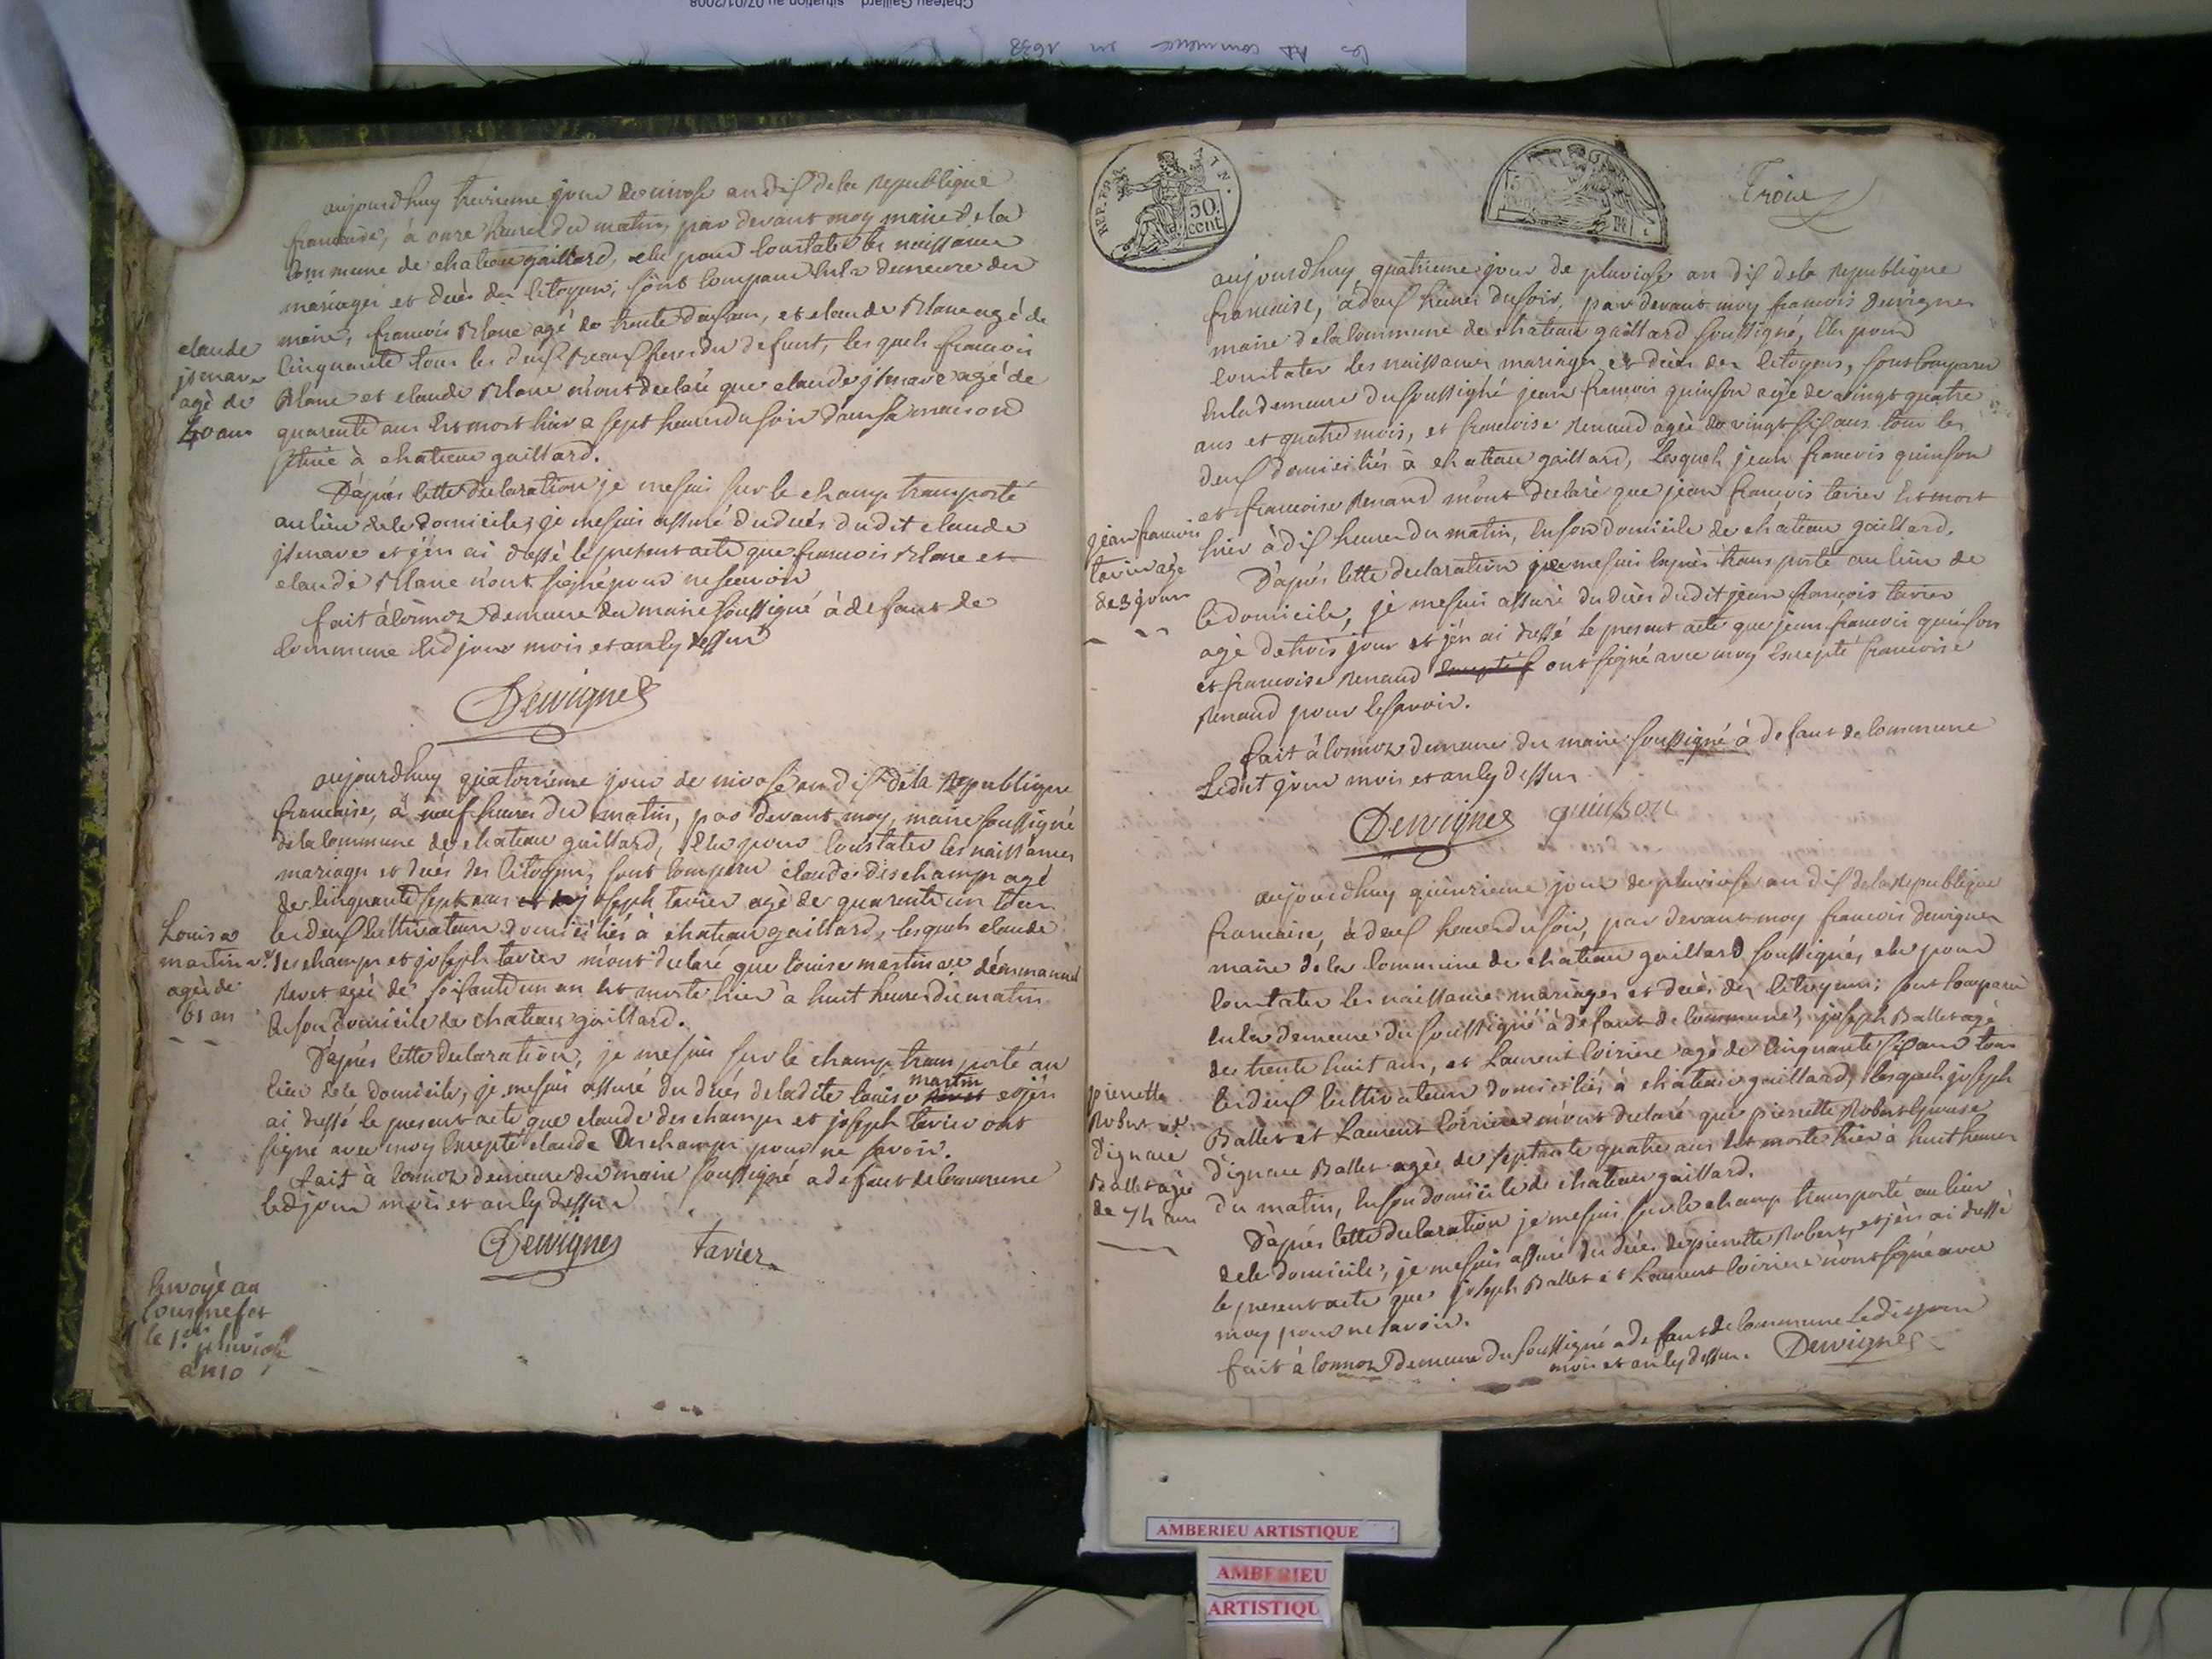 Chateau Gaillard situation au 07/01/2008
les commence en 1638
aujourdhuy treisieme jour de nivose an dix de la republique
francaise, à onze heures du matin, par devant moy maire de la
commune de chateau gaillard, elu pour constater les naissances
mariages et decès des citoyens, sont comparu en la demeure du
maire, francois Blanc agé de trente deux ans, et claude Blanc agé de
cinquante tous les deux beaux freres du defunt, les quels francois
Blanc et claude Blanc m'ont declaré que claude agé de
quarente ans est mort hier a sept heures du soir dans sa maison
située à chateau gaillard.
D'après cette declaration je me suis sur le champ transporté
au lieu de le domicile, je me suis assuré du decès du dit claude
et j'en ai dressé le present acte que francois Blanc et
claude Blanc n'ont signé pour ne scavoir
fait à cormoz demeure du maire soussigné à defaut de
commune led jour mois et an cy dessus
Dewignes
claude
agé de
40 ans
aujourdhuy quatorzieme jour de nivose an dix de la Republique
francaise, à neuf heures du matin, par devant moy, maire soussigné
de la commune de chateau gaillard, elu pour constater les naissances
mariages et decés des citoyens, sont comparu claude deschamps agé
de cinquante sept ans et joseph tavier agé de quarente un tous
les deux cultivateurs domiciliés à chateau gaillard, lesquels claude
deschamps et joseph tavier m'ont declaré que louise martin
Revet agée de soixante un an est morte hier a huit heures du matin
en son domicile de chateau gaillard.
D'après cette declaration, je me suis sur le champ transporté au
lieu de le domicile, je me suis assuré du decés de ladite louise martin et j'en
ai dressé le present acte que claude deschamps et joseph tavier ont
signé avec moy excepté claude Deschamps pour ne savoir.
fait à cormoz demeure du maire soussigné a defaut de commune
led jour mois et an cy dessus
Dewignes tavier
Louise
martin
agée de
61 an
Envoyé au
sousprefet
le 1er pluviose
an 10
REP. FRA.
50
cent
Troise
aujourdhuy quatrieme jour de pluviose an dix de la Republique
francaise, à deux heures du soir, par devant moy francois Dewignes
maire de la commune de chateau gaillard soussigné, elu pour
constater les naissances mariages et decès des citoyens, sont comparu
en la demeure du soussigné jean françois quinson agé de vingt quatre
ans et quatre mois, et francoise Renaud agée de vingt six ans tous les
deux domiciliés à chateau gaillard, lesquels jean francois quinson
et francoise Renaud m'ont declaré que jean francois tavier est mort
hier à dix heures du matin, en son domicile de chateau gaillard.
D'après cette declaration je me suis transporté au lieu de
le domicile, je me suis assuré du decès dudit jean françois tavier
agé de trois jour et j'en ai dressé le present acte que jean francois quinson
et francoise Renaud excepté ont signé avec moy excepté francoise
Renaud pour le savoir.
fait à cormoz demeure du maire soussigné à defaut de commune
Ledit jour mois et an cy dessus
Dewignes quinson
jean francois
tavier agé
de 3 jours
aujourdhuy quinzieme jour de pluviose an dix de la Republique
francaise, à deux heures du soir, par devant moy francois Dewignes
maire de la commune de château gaillard soussigné, elu pour
constater les naissances mariages et decès des citoyens; sont comparu
en la demeure du soussigné à defaut de commune, joseph Ballet agé
de trente huit ans, et Laurent loiriere agé de cinquante six ans tous
les deux cultivateurs domiciliés à château gaillard, lesquels joseph
Ballet et Laurent loiriere m'ont declaré que pierrette Robert epouse
d'ignace Ballet agée de septante quatre ans est morte hier à huit heures
du matin, en son domicile de chateau gaillard.
D'après cette declaration je me suis sur le champ transporté au lieu
de le domicile, je me suis assuré du decès de pierrette Robert, et j'en ai dressé
le present acte que joseph Ballet et Laurent loiriere n'ont signé avec
moy pour ne savoir.
fait à cormoz demeure du soussigné a defaut de commune Ledit jour
mois et an cy dessus. Dewignes
pierrette
Robert
d'ignace
Ballet agée
de 74 ans
AMBERIEU ARTISTIQUE
AMBERIEU
ARTISTIQU